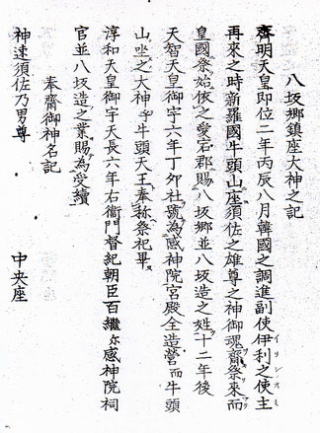 八坂郷鎮座大神之記
齊明天皇即位二年丙辰八月韓國之調進副使伊利之使主
再來之時新羅國牛頭山座須佐之雄尊之神御魂齋祭來而
皇國祭始依之愛宕郡賜八坂郷並八坂造之姓十二年後
天智天皇御宇六年丁卯社號為感神院宮殿全造營而牛頭
山坐之大神乎牛頭天王奉称祭祀畢
淳和天皇御宇天長六年右衛門督紀朝臣百繼尓感神院祠
官並八坂造之業賜為受續
奉齋御神名記
神速須佐乃男尊 中央座